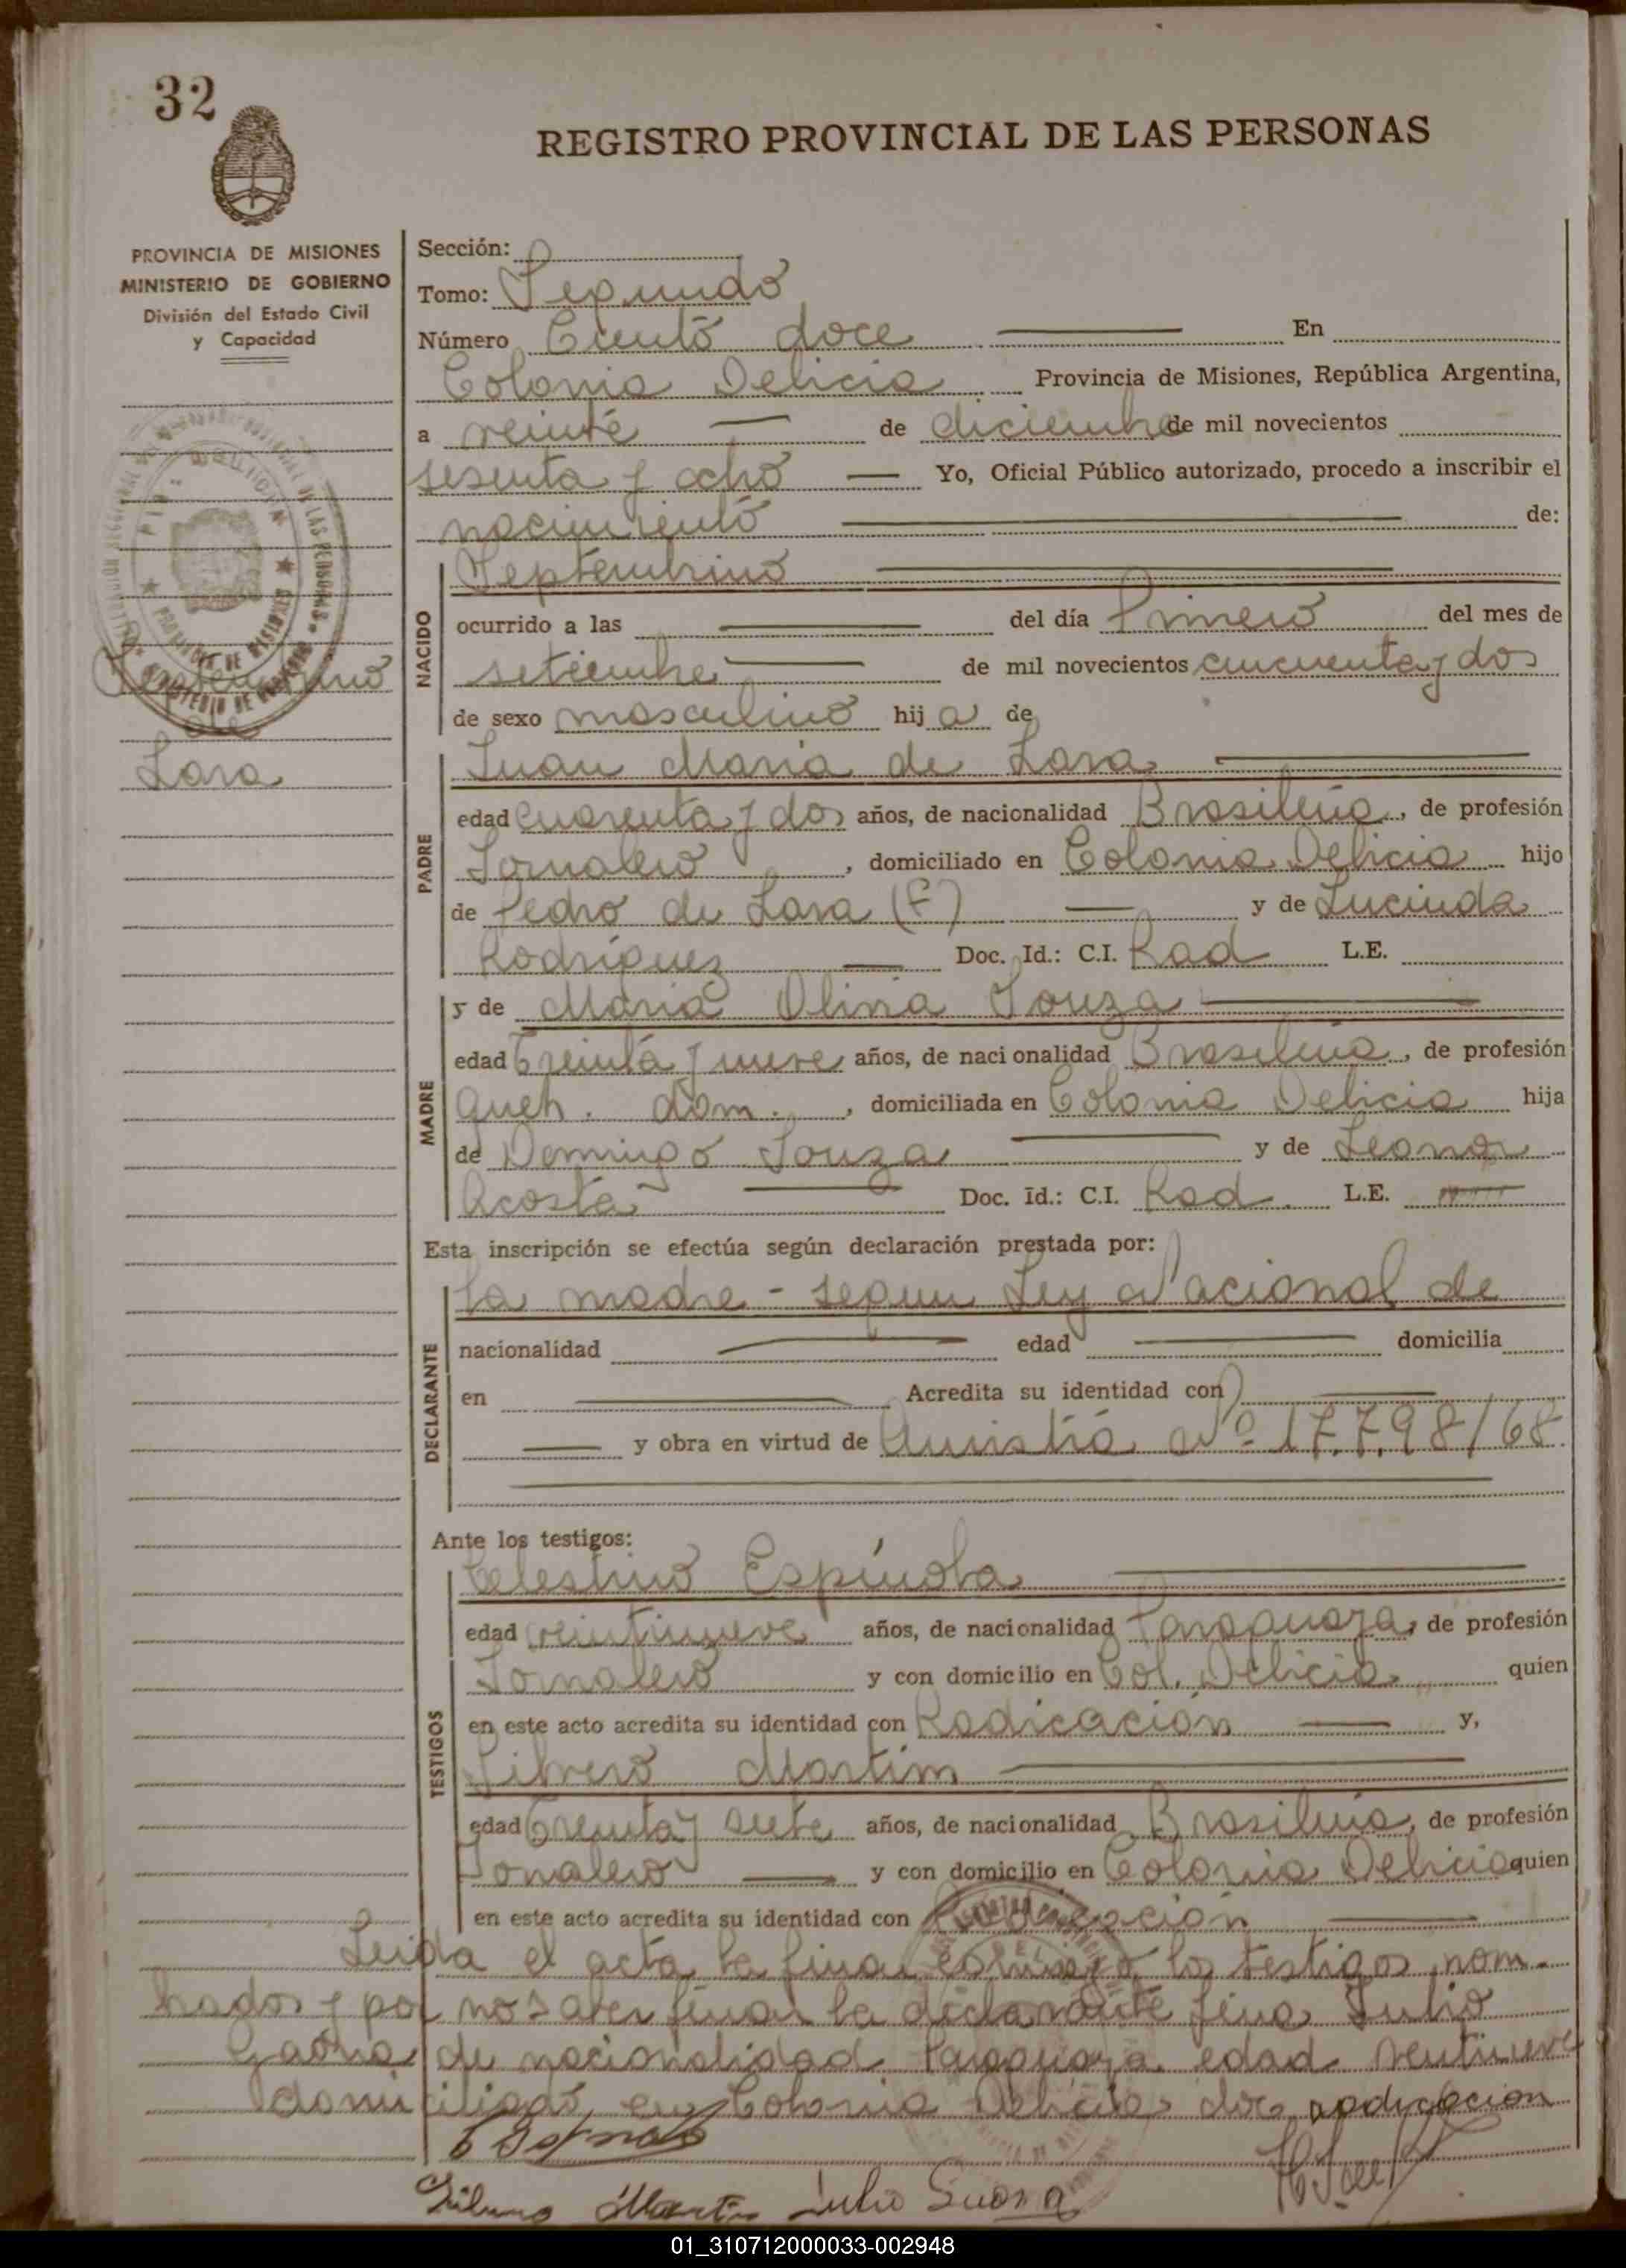 32
REGISTRO PROVINCIAL DE LAS PERSONAS
PROVINCIA DE MISIONES
MINISTERIO DE GOBIERNO
División del Estado Civil
y Capacidad
Septembrino
de
Lara
Sección:
Tomo: Segundo
Número Ciento doce En
Colonia Delicia Provincia de Misiones, República Argentina,
a veinte de diciembre de mil novecientos
sesenta y ocho Yo, Oficial Público autorizado, procedo a inscribir el
nacimiento de:
NACIDO
Septembrino
ocurrido a las del día Primero del mes de
setiembre de mil novecientos cincuenta y dos
de sexo masculino hij o de
PADRE
Juan Maria de Lara
edad cuarenta y dos años, de nacionalidad Brasileña, de profesión
Jornalero, domiciliado en Colonia Delicia hijo
de Pedro de Lara (F) y de Lucinda
Rodríguez Doc. Id.: C.I. Rad L.E.
MADRE
y de Maria Olina Souza
edad Treinta y nueve años, de naci onalidad Brasileña, de profesión
Queh. dom., domiciliada en Colonia Delicia hija
de Domingo Souza y de Leonor
Acosta Doc. Id.: C.I. Rad. L.E.
Esta inscripción se efectúa según declaración prestada por:
DECLARANTE
La madre - segun Ley Nacional de
nacionalidad edad domicilia
en Acredita su identidad con
y obra en virtud de Amnistia Nº 17.798/68.
Ante los testigos:
TESTIGOS
Celestino Espínola
edad veintinueve años, de nacionalidad Paraguaya, de profesión
Jornalero y con domicilio en Col. Delicia quien
en este acto acredita su identidad con Radicación y,
Silverio Martim
edad Treinta y siete años, de nacionalidad Brasileña, de profesión
Jonalero y con domicilio en Colonia Delicia quien
en este acto acredita su identidad con Radicación
Leida el acta la firman conmigo los testigos nom-
brados y por no saber firmar la declarante firma Julio
Gaona de nacionalidad Paraguaya edad ventinueve
domiciliado en Colonia Delicia doc radicacion
Martin Julio Guona
01_310712000033-002948